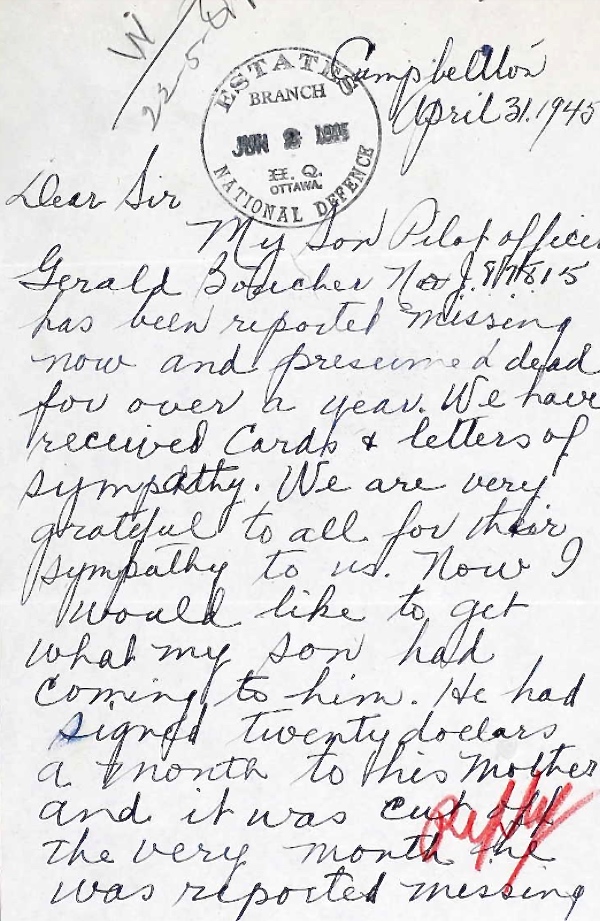 W
22-5-45
Campbellton
April 31. 1945
ESTATES
BRANCH
JUN 2 1945
H. Q.
OTTAWA.
NATIONAL DEFENCE
Dear Sir
My Son Pilot officer
Gerald Boucher No J. 87815
has been reported missing
now and presumed dead
for over a year. We have
received Cards & letters of
sympathy. We are very
grateful to all for their
sympathy to us. Now I
would like to get
what my son had
coming to him. He had
signed twenty doclars
a month to his Mother
and it was cut off
the very month he
was reported missing